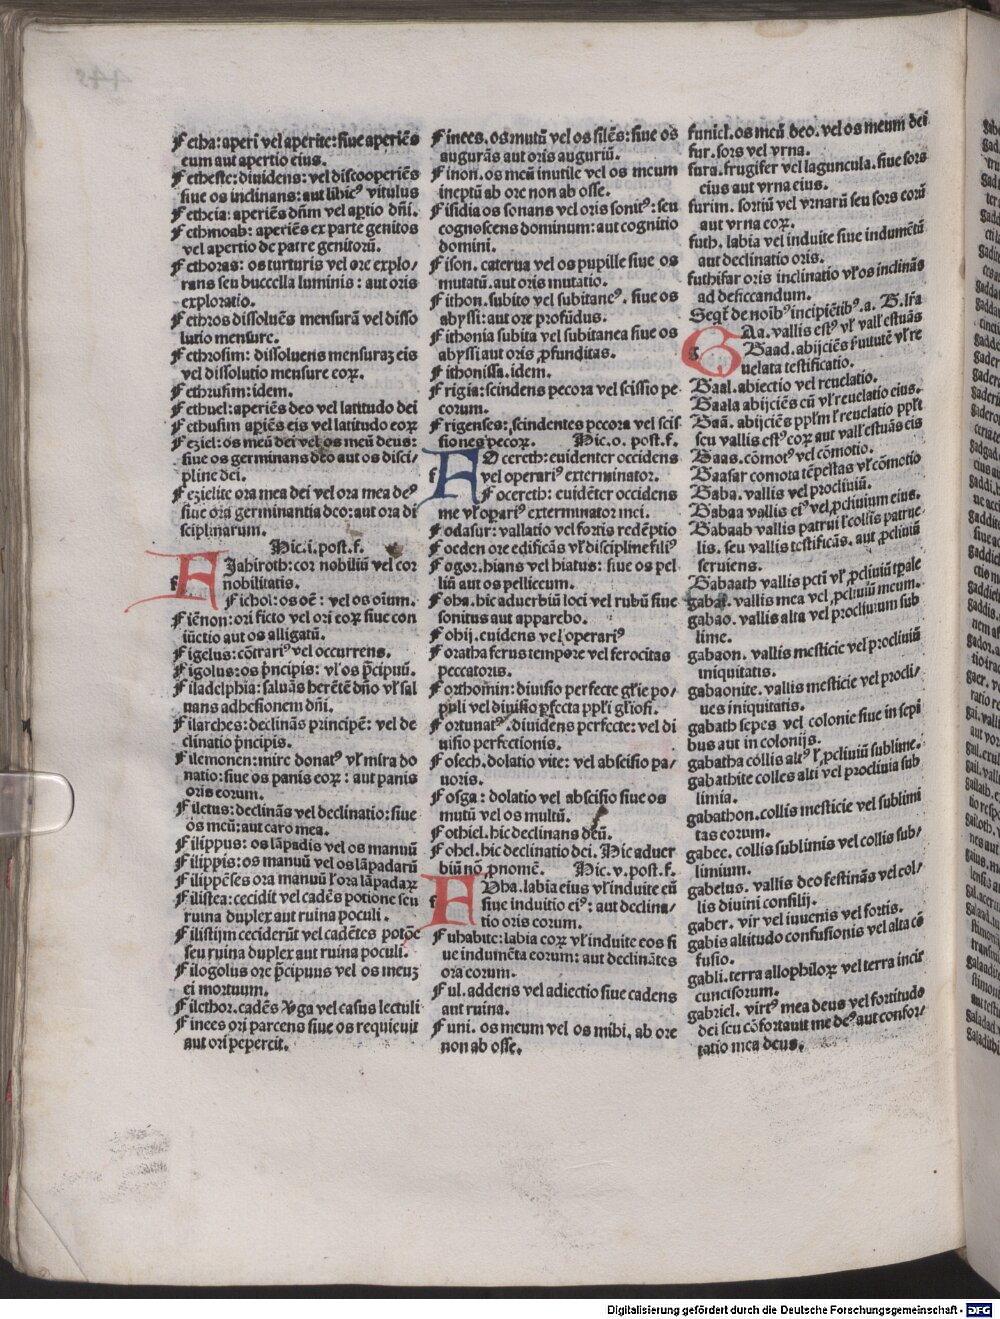 Fetha: aperi vel aperite: siue aperiēs
eum aut apertio eius.
Fetheste: diuidens: vel discooperiēs
siue os inclinans: aut vitulus
Fetheia: aperiēs dn̄m vel aptio dn̄i.
Fethmoab: aperiēs ex parte genitos
vel apertio de patre genitorū.
Fethoras: os turturis vel ore explo/
rans seu buccella luminis: aut oris
exploratio.
Fethros dissoluēs mensurā vel disso
lutio mensure.
Fethrosim: dissoluens mensuraȝ eis
vel dissolutio mensure eoꝝ.
Fethrusim: idem.
Fethuel: aperiēs deo vel latitudo dei
Fethusim apiēs eis vel latitudo eoꝝ
Feziel: os meū dei vel os meū deus:
siue os germinans deo aut os disci/
pline dei.
Fezielite ora mea dei vel ora mea de⁹
siue ora germinantia deo: aut ora di
sciplinarum.
Hic. i. post. f.
FJahiroth: cor nobiliū vel cor
nobilitatis.
Fichol: os oē: vel os oium.
Fiēnon: ori ficto vel ori eoꝝ siue con
iūctio aut os alligatū.
Figelus: cōtrari⁹ vel occurrens.
Figolus: os p̄ncipis: vl' os p̄cipuū.
Filadelphia: saluās herētē dn̄o vl' sal
uans adhesionem dn̄i.
Filarches: declinās principē: vel de
clinatio p̄ncipis.
Filemonen: mire donat⁹ vl' mira do
natio: siue os panis eoꝝ: aut panis
oris eorum.
Filetus: declinās vel declinatio: siue
os meū: aut caro mea.
Filippus: os lāpadis vel os manuū
Filippis: os manuū vel os lāpadarū
Filippēses ora manuū l' ora lāpadaꝝ
Filistea: cecidit vel cadēs potione seu
ruina duplex aut ruina poculi.
Filistijm ceciderūt vel cadētes potōe
seu ruina duplex aut ruina poculi.
Filogolus ore p̄cipuus vel os meuȝ
ei mortuum.
Filethor. cadēs vel casus lectuli
Finees ori parcens siue os requieuit
aut ori pepercit.
Finees. os mutū vel os silēs: siue os
augurās aut oris auguriū.
Finon. os meū inutile vel os meum
ineptū ab ore non ab osse.
Fisidia os sonans vel oris sonit⁹: seu
cognoscens dominum: aut cognitio
domini.
Fison. caterua vel os pupille siue os
mutatū. aut oris mutatio.
Fithon. subito vel subitane⁹. siue os
abyssi: aut ore profūdus.
Fithonia subita vel subitanea siue os
abyssi aut oris ꝓfunditas.
Fithonissa. idem.
Frigia: scindens pecora vel scissio pe
corum.
Frigenses: scindentes pecora vel scis
siones pecoꝝ. Hic. o. post. f.
FOcereth: euidenter occidens
vel operari⁹ exterminator.
Focereth: euidēter occidens
me vl' opari⁹ exterminator mei.
Fodasur: vallatio vel fortis redēptio
Foeden ore edificās vl' discipline filij⁹
Fogor. hians vel hiatus: siue os pel
liū aut os pelliceum.
Foha. hic aduerbiū loci vel rubū siue
sonitus aut apparebo.
Fohij. euidens vel operari⁹
Foratha ferus tempore vel ferocitas
peccatoris.
Forthomin: diuisio perfecte gl'ie po/
puli vel diuisio pfecta ppl'i gl'iosi.
Fortunat⁹. diuidens perfecte: vel di
uisio perfectionis.
Fosech. dolatio vite: vel abscisio pa/
uoris.
Fosga: dolatio vel abscisio siue os
mutū vel os multū.
Fothiel. hic declinans deū.
Fohel. hic declinatio dei. Hic aduer
biū nō ꝓnomē. Hic. v. post. f.
FUha. labia eius vl' induite eū
siue induitio ei⁹: aut declina/
tio oris eorum.
Fuhabite: labia eoꝝ vl' induite eos si
ue indumēta eorum: aut declinātes
ora eorum.
Ful. addens vel adiectio siue cadens
aut ruina.
Funi. os meum vel os mihi, ab ore
non ab osse.
funiel. os meū deo. vel os meum dei
fur. sors vel vrna.
fura. frugifer vel laguncula. siue sors
eius aut vrna eius.
furim. sortiū vel vrnarū seu sors eorū
aut vrna eoꝝ.
futh. labia vel induite siue indumētū
aut declinatio oris.
futhifar oris inclinatio vl' os inclinās
ad desiccandum.
Seqr̄ de noib⁹ incipiētib⁹. a. G. lr̄a
GAa. vallis est⁹ vl' vall' estuās
Gaad. abijciēs v̄tutē vl' re
uelata testificatio.
Gaal. abiectio vel reuelatio.
Gaala abijciēs eū vl' reuelatio eius.
Gaā. abijciēs ppl'm l' reuelatio ppl'i
seu vallis est⁹ eoꝝ aut vall' estuās eis
Gaas. cōmot⁹ vel cōmotio.
Gaasar comota tēpestas vl' cōmotio
Gaba. vallis vel procliuiū.
Gabaa vallis ei⁹ vel ꝓcliuium eius.
Gabaab vallis patrui l' collis patrue/
lis. seu vallis testificās. aut ꝓcliuiū
seruiens.
Gabaath vallis pcti vl' ꝓcliuiū
gabai. vallis mea vel ꝓcliuiū meum.
gabao. vallis alta vel procliuium sub
lime.
gabaon. vallis mesticie vel procliuiū
iniquitatis.
gabaonite. vallis mesticie vel procli/
ues iniquitatis.
gabath sepes vel colonie siue in sepi
bus aut in colonijs.
gabatha collis alt⁹ l' ꝓcliuiū sublime.
gabathite colles alti vel procliuia sub
limia.
gabathon. collis mesticie vel sublimi
tas eorum.
gabee. collis sublimis vel collis sub/
limium.
gabelus. vallis deo festinās vel col/
lis diuini consilij.
gaber. vir vel iuuenis vel fortis.
gabis altitudo confusionis vel alta cō
fusio.
gabli. terra allophiloꝝ vel terra incir
cuncisorum.
gabriel. virt⁹ mea deus vel fortitudo
dei seu cōfortauit me de⁹ aut confor/
tatio mea deus.
Digitalisierung gefördert durch die Deutsche Forschungsgemeinschaft - DFG